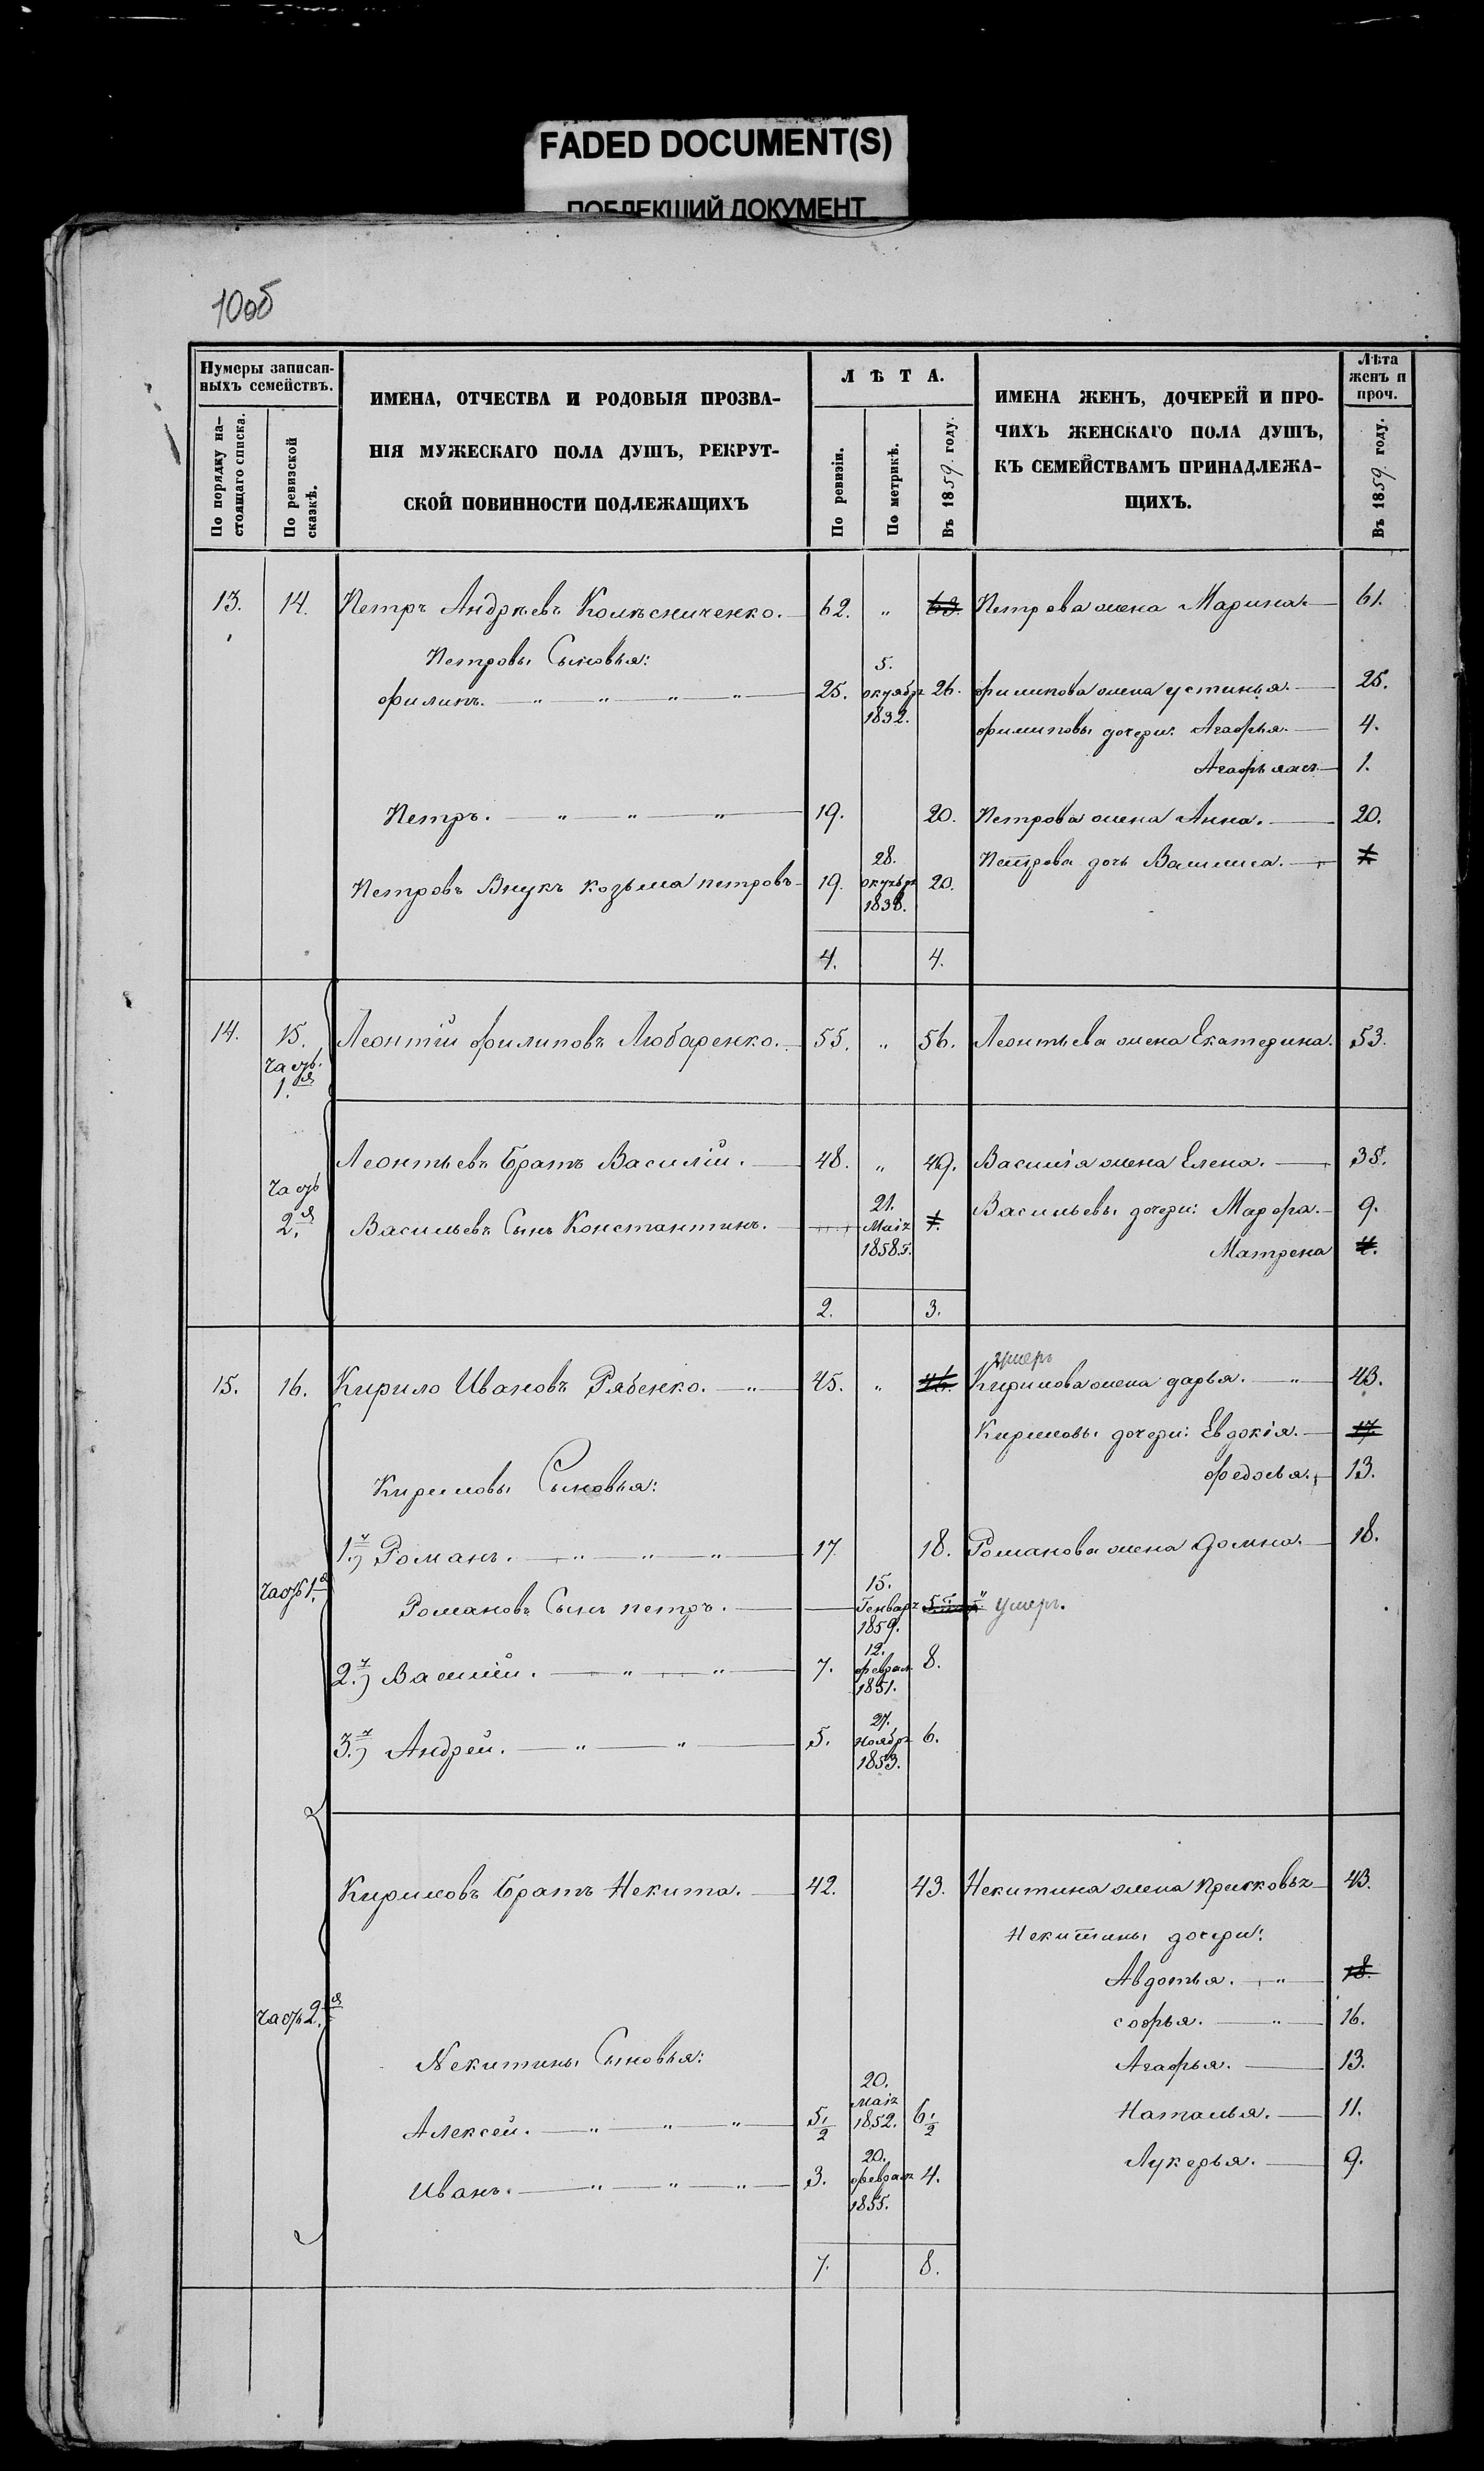 FADED DOCUMENT(S)
ПОБЛЕКШИЙ ДОКУМЕНТ
10об
Нумеры записан-
ныхъ семействъ.
По порядку на-
стоящаго списка.
По ревизской
сказкѣ.
ИМЕНА, ОТЧЕСТВА И РОДОВЫЯ ПРОЗВА-
НІЯ МУЖЕСКАГО ПОЛА ДУШЪ, РЕКРУТ-
СКОЙ ПОВИННОСТИ ПОДЛЕЖАЩИХЪ
ЛѢТА.
По ревизіи.
По метрикѣ.
Въ 1859 году.
ИМЕНА ЖЕНЪ, ДОЧЕРЕЙ И ПРО-
ЧИХЪ ЖЕНСКАГО ПОЛА ДУШЪ,
КЪ СЕМЕЙСТВАМЪ ПРИНАДЛЕЖА-
ЩИХЪ.
Лѣта
женъ и
проч.
Въ 1859 году.
13. 14. Петръ Андрѣевъ Колѣсниченко. 62. " 63. Петрова жена Марина. 61.
Петровы Сыновья:
Филипъ. " " " " 25. 5. октябр 1832. 26. Филипова жена устинья. 25.
Филиповы дочери: Агафья. 4.
1.
Петръ. " " " 19. 20. Петрова жена Анна. 20.
Петрова дочь Василиса.
Петровъ Внукъ козьма петровъ 19. 28. октябр 1838. 20.
4. 4.
14. 15. Леонтій Филиповъ Любаренко. 55. " 56. Леонтьева жена Екатерина. 53.
часть.
1.я
Леонтьевъ Братъ Василій. 48. " 49. Василія жена Елена. 35.
часть
2.я
Васильевъ Сынъ Константинъ. 21. Маія 1858. Васильевы дочери: Марфа. 9.
Матрена
2. 3.
умеръ
15. 16. Кирило Ивановъ Рябенко. " 45. " 46. Кирилова жена дарья. " 43.
Кириловы дочери: Евдокія. 17.
Федосья. 13.
Кириловы Сыновья:
1.й) Романъ. " " " 17 18. Романова жена Домна. 18.
часть 1.я
Романовъ Сынъ петръ. 15. Генваря 1859. умеръ.
2.й) Василій. " " 7. 12. феврал 1851. 8.
3.й) Андрей. " " 5. 27. Ноябр 1853. 6.
Кириловъ Братъ Некита. 42. 43. Некитина жена Прасковья 43.
Некитины дочери:
Авдотья. " 18.
часть 2.я
софья. " 16.
Некитины Сыновья:
Агафья. 13.
Алексей. " " " 5 1/2 20. Маія 1852. 6 1/2 Наталья. 11.
Иванъ. " " " 3. 20. феврал 1855. 4. Лукерья. 9.
7. 8.